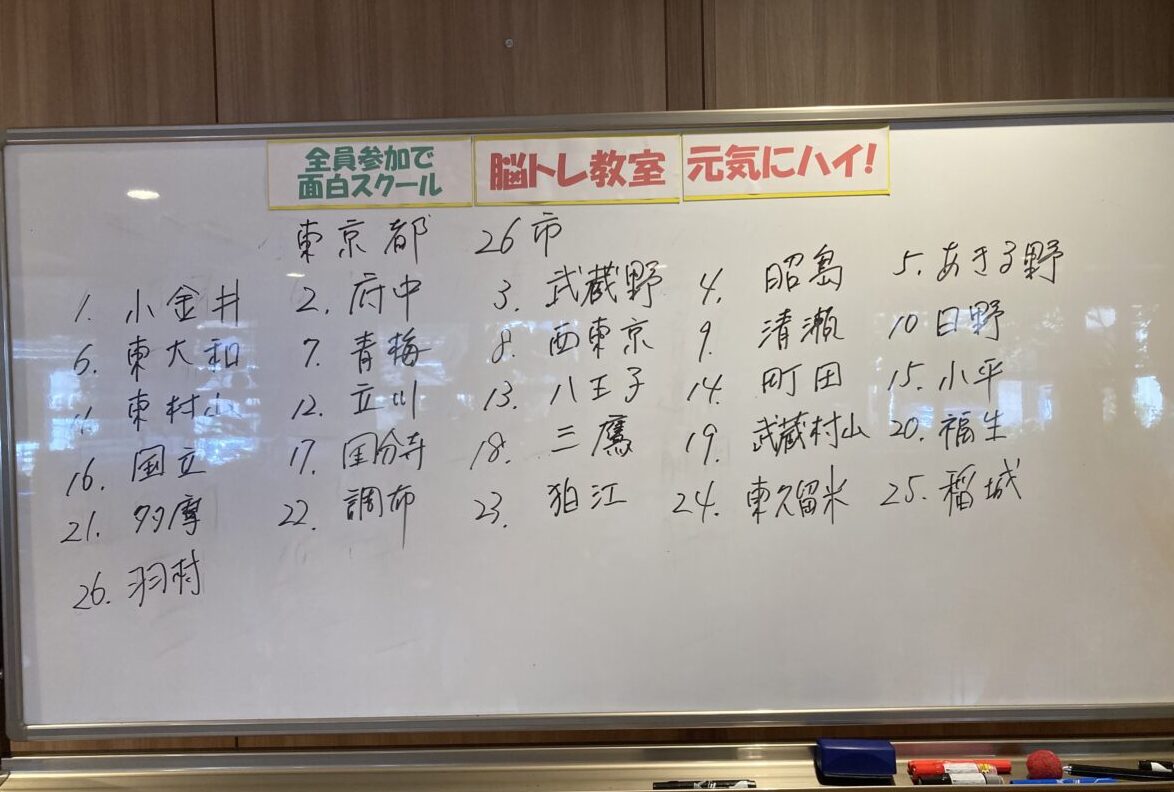 全員参加で
面白スクール
脳トレ教室
元気にハイ!
東京都 26市
1. 小金井 2. 府中 3. 武蔵野 4. 昭島 5. あきる野
6. 東大和 7. 青梅 8. 西東京 9. 清瀬 10 日野
11. 東村山 12. 立川 13. 八王子 14. 町田 15. 小平
16. 国立 17. 国分寺 18. 三鷹 19. 武蔵村山 20. 福生
21. 多摩 22. 調布 23. 狛江 24. 東久留米 25. 稲城
26. 羽村